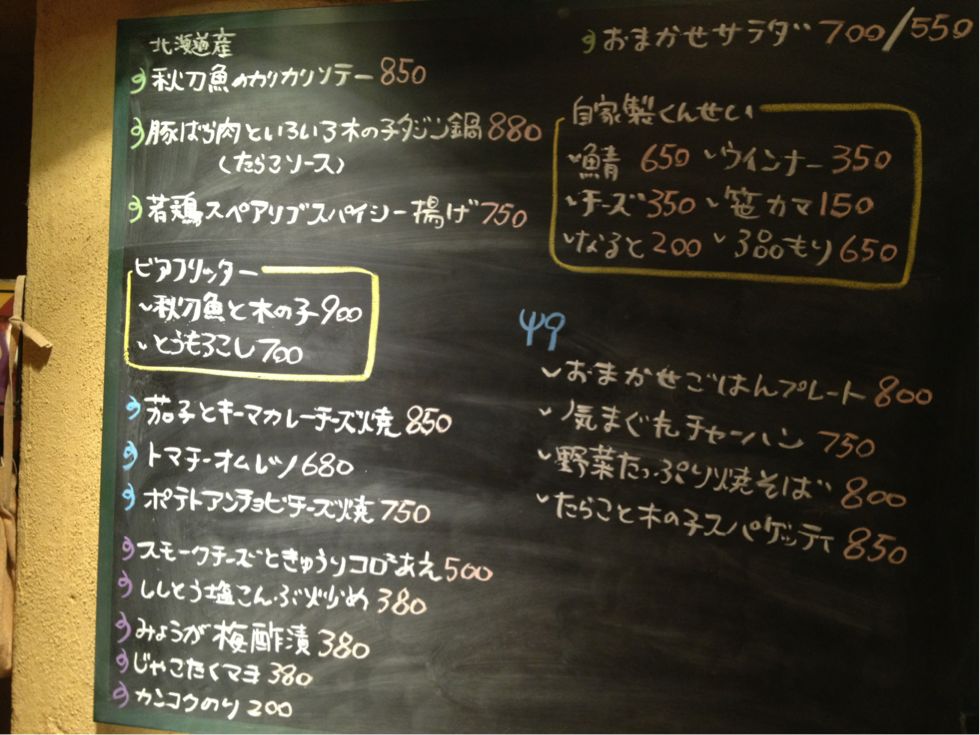 北海道産
秋刀魚のカリカリソテー 850
豚ばら肉といろいろ木の子タジン鍋 880
(たらこソース)
若鶏スペアリブスパイシー揚げ 750
ビアフリッター
秋刀魚と木の子 900
とうもろこし 700
茄子とキーマカレーチーズ焼 850
トマチーオムレツ 680
ポテトアンチョビチーズ焼 750
スモークチーズときゅうりコロコロあえ 500
ししとう塩こんぶ炒め 380
みょうが梅酢漬 380
じゃこたくマヨ 380
カンコクのり 200
おまかせサラダ 700/550
自家製くんせい
鯖 650 ウインナー 350
チーズ 350 笹カマ 150
なると 200 3品もり 650
おまかせごはんプレート 800
気まぐれチャーハン 750
野菜たっぷり焼そば 800
たらこと木の子スパゲッティ 850